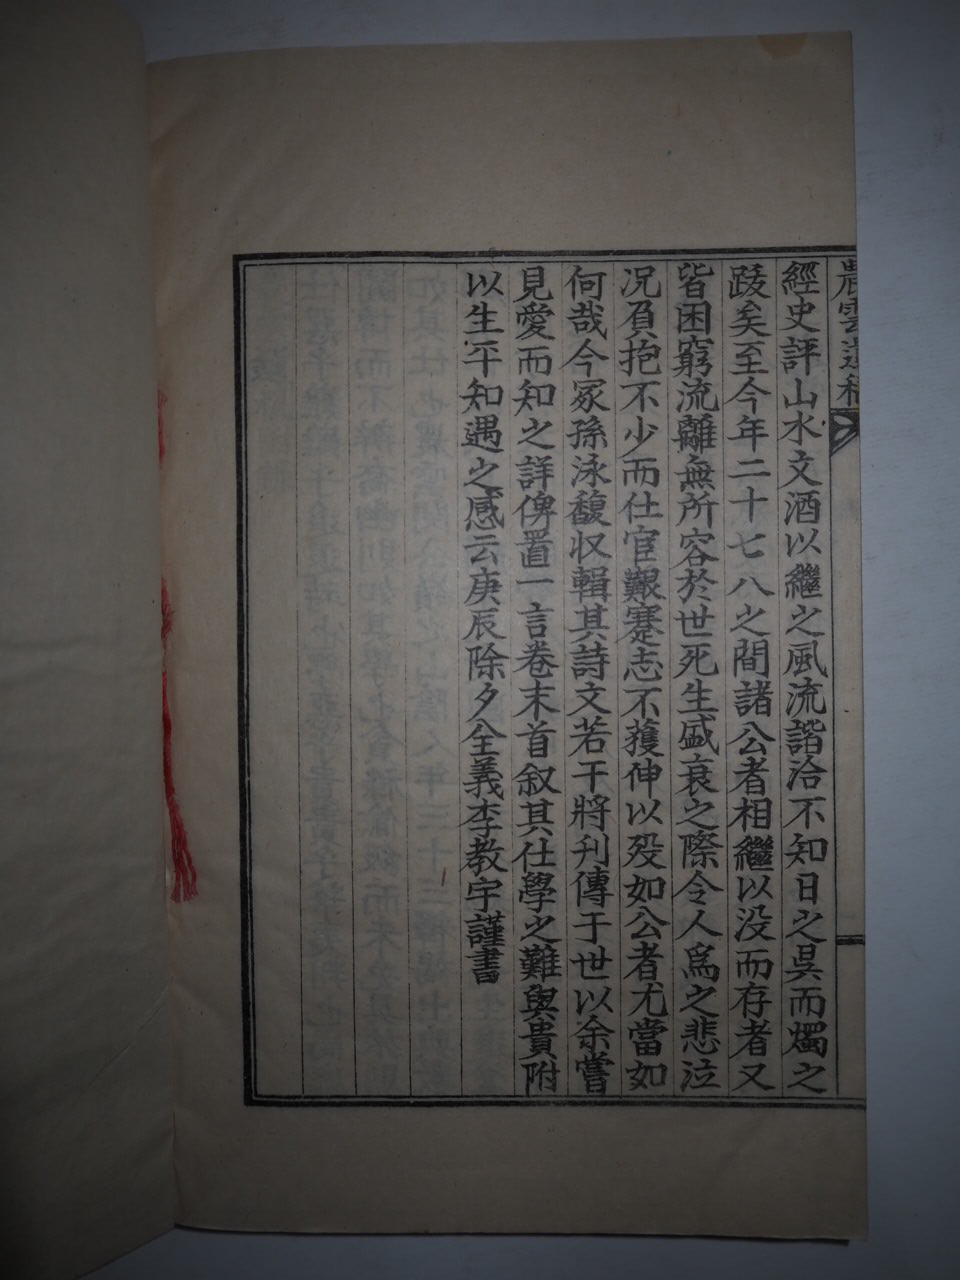 農雲遺稿
經史評山水文酒以繼之風流諧洽不知日之昃而燭之
跋矣至今年二十七八之間諸公者相繼以没而存者又
皆困窮流離無所容於世死生盛衰之際令人爲之悲泣
况負抱不少而仕宦艱蹇志不獲伸以歿如公者尤當如
何哉今冢孫泳馥収輯其詩文若干將刋傳于世以余嘗
見愛而知之詳俾置一言卷末首叙其仕學之難與貴附
以生平知遇之感云庚辰除夕全義李教宇謹書